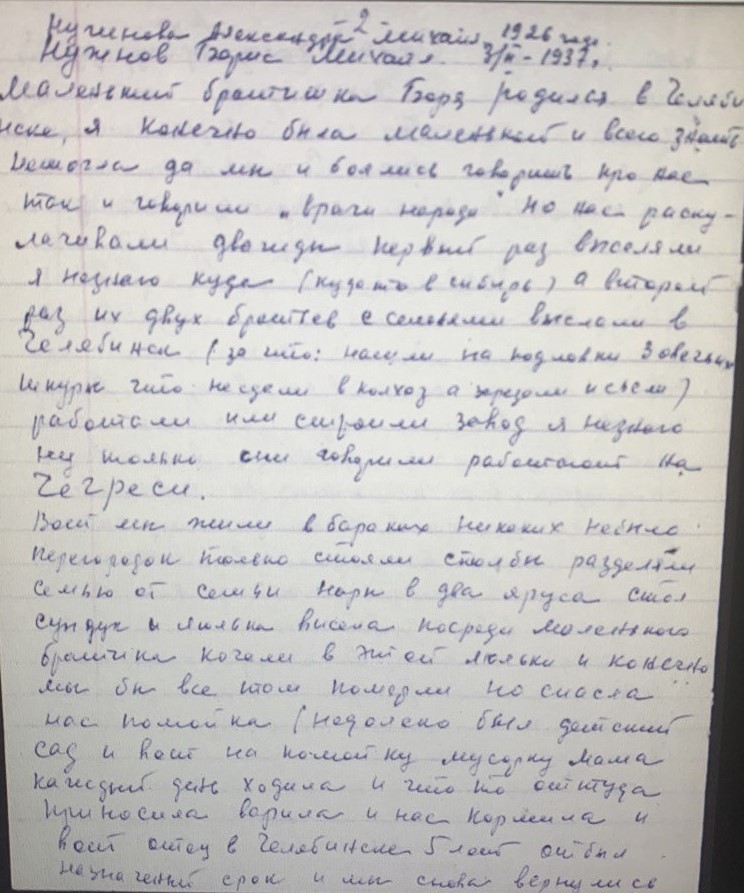 2
Нужнова Александра Михайл. 1926 года
Нужнов Борис Михайл. 3/II-1937г.
Маленький братишка Боря родился в Челяби
нске, я конечно была маленькой и всего знать
немогла да мы и боялись говорить про нас
так и говорили „враги народа" но нас раску-
лачивали дважды первый раз выселяли
я незнаю куда (кудато в сибирь) а второй
раз их двух братьев с семьями выслали в
Челябинск (за что: нашли на подловки 3 овечьих
шкуры что несдали в колхоз а зарезали и сьели)
работали или строили завод я незнаю
ну только они говорили работают на
Чегреси.
Вот мы жили в бараках никаких небыло
перегородок только стояли столбы разделяли
семью от семьи нары в два яруса стол
сундук и люлька висела посреди маленького
братика качали в этой люльки и конечно
мы бы все там померли но спасла
нас помойка (недалеко был детский
сад и вот на помойку мусорку мама
каждый день ходила и что то оттуда
приносила варила и нас кормила и
вот отец в Челябинске 5 лет отбыл
назначеный срок и мы снова вернулись